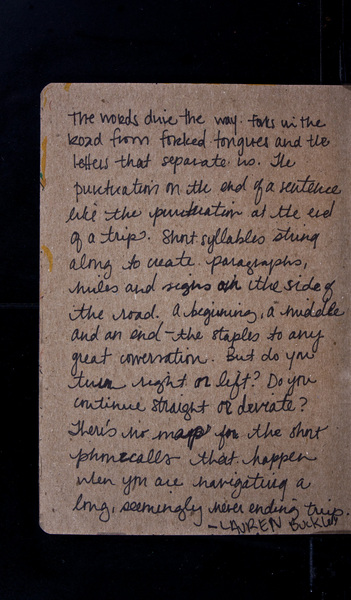 The words drive the way. Forks in the
road from forked tongues and the
letters that separate us. The
punctuation on the end of a sentence
like the punctuation at the end
of a trip. Short syllables string
along to create paragraphs,
miles and signs on the side of
the road. A beginning, a middle
and an end - the staples to any
great conversation. But do you
turn right or left? Do you
continue straight or deviate?
There's no map for the short
phonecalls that happen
when you are navigating a
long, seemingly never ending trip.
- LAUREN Buckley